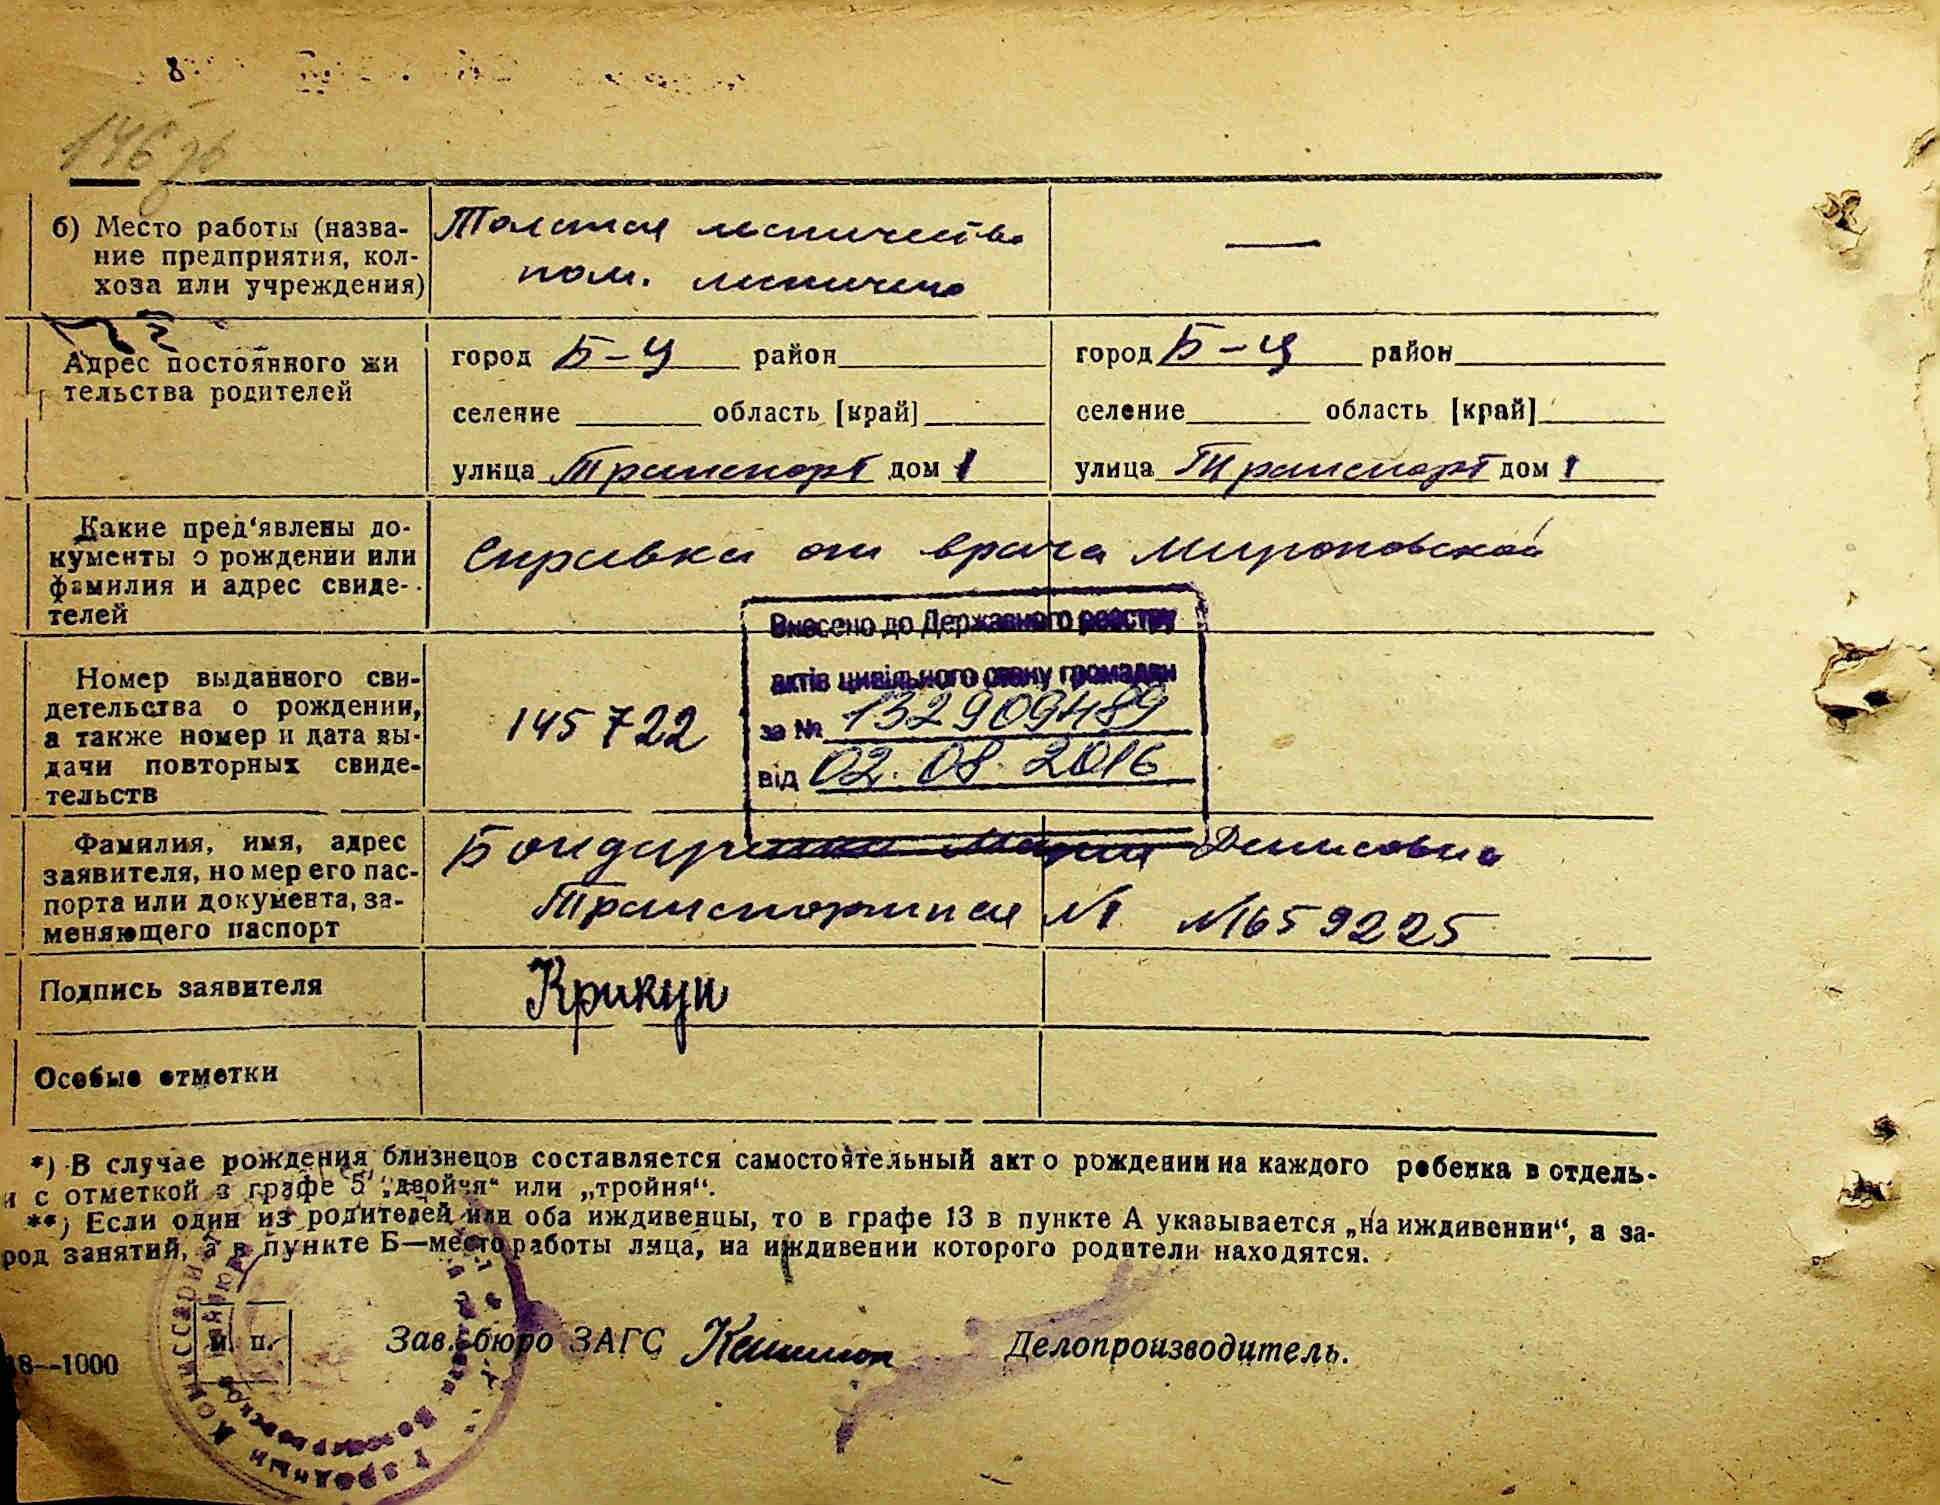 146 об
б) Место работы (назва-
ние предприятия, кол-
хоза или учреждения)
лесничества
пом. лесничего
—
Адрес постоянного жи
тельства родителей
город Б-Ц район
селение область [край]
улица Транспорт дом 1
город Б-Ц район
селение область [край]
улица Транспорт дом 1
Какие пред'явлены до-
кументы о рождении или
фамилия и адрес свиде-
телей
Справка от врача Мироновской
Номер выданного сви-
детельства о рождении,
а также номер и дата вы-
дачи повторных свиде-
тельств
145722
Внесено до Державного реєстру
актів цивільного стану громадян
за № 132909489
від 02.08.2016
Фамилия, имя, адрес
заявителя, номер его пас-
порта или документа, за-
меняющего паспорт
Бондаренко Мария Денисовна
Транспортная №1 №1659225
Подпись заявителя
Крикун
Особые отметки
*) В случае рождения близнецов составляется самостоятельный акт о рождении на каждого ребенка в отдель-
и с отметкой в графе 5 „двойня“ или „тройня“.
**) Если один из родителей или оба иждивенцы, то в графе 13 в пункте А указывается „на иждивении“, а за-
род занятий, а в пункте Б—место работы лица, на иждивении которого родители находятся.
м. п.
Зав. бюро ЗАГС
Делопроизводитель.
18--1000